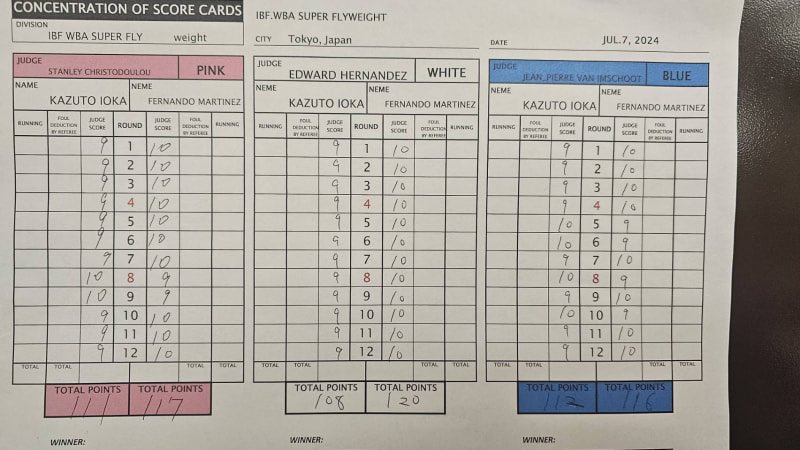 CONCENTRATION OF SCORE CARDS
DIVISION
IBF WBA SUPER FLY weight
IBF.WBA SUPER FLYWEIGHT
CITY Tokyo, Japan
DATE JUL.7, 2024
JUDGE
STANLEY CHRISTODOULOU PINK
NAME NEME
KAZUTO IOKA FERNANDO MARTINEZ
RUNNING FOUL DEDUCTION BY REFEREE JUDGE SCORE ROUND JUDGE SCORE FOUL DEDUCTION BY REFEREE RUNNING
9 1 10
9 2 10
9 3 10
9 4 10
9 5 10
9 6 10
9 7 10
10 8 9
10 9 9
9 10 10
9 11 10
9 12 10
TOTAL TOTAL TOTAL TOTAL
TOTAL POINTS TOTAL POINTS
111 117
WINNER:
JUDGE
EDWARD HERNANDEZ WHITE
NAME NEME
KAZUTO IOKA FERNANDO MARTINEZ
RUNNING FOUL DEDUCTION BY REFEREE JUDGE SCORE ROUND JUDGE SCORE FOUL DEDUCTION BY REFEREE RUNNING
9 1 10
9 2 10
9 3 10
9 4 10
9 5 10
9 6 10
9 7 10
9 8 10
9 9 10
9 10 10
9 11 10
9 12 10
TOTAL TOTAL TOTAL TOTAL
TOTAL POINTS TOTAL POINTS
108 120
WINNER:
JUDGE
JEAN_PIERRE VAN IMSCHOOT BLUE
NAME NEME
KAZUTO IOKA FERNANDO MARTINEZ
RUNNING FOUL DEDUCTION BY REFEREE JUDGE SCORE ROUND JUDGE SCORE FOUL DEDUCTION BY REFEREE RUNNING
9 1 10
9 2 10
9 3 10
9 4 10
10 5 9
10 6 9
9 7 10
10 8 9
9 9 10
10 10 9
9 11 10
9 12 10
TOTAL TOTAL TOTAL TOTAL
TOTAL POINTS TOTAL POINTS
112 116
WINNER: